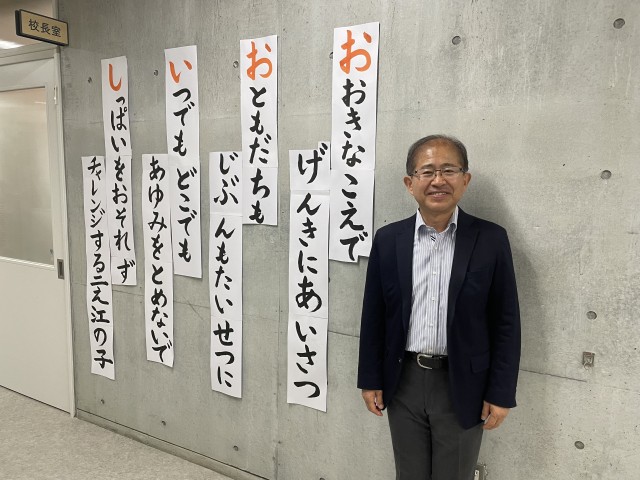 校長室
おおきなこえで
げんきにあいさつ
おともだちも
じぶんもたいせつに
いつでもどこでも
あゆみをとめないで
しっぱいをおそれず
チャレンジする二え江の子